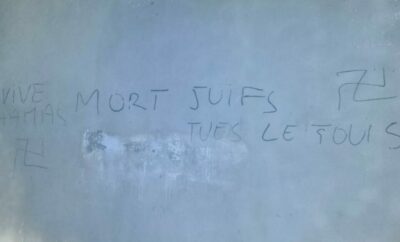 VIVE
HAMAS
MORT JUIFS
TUES LE TOUIS